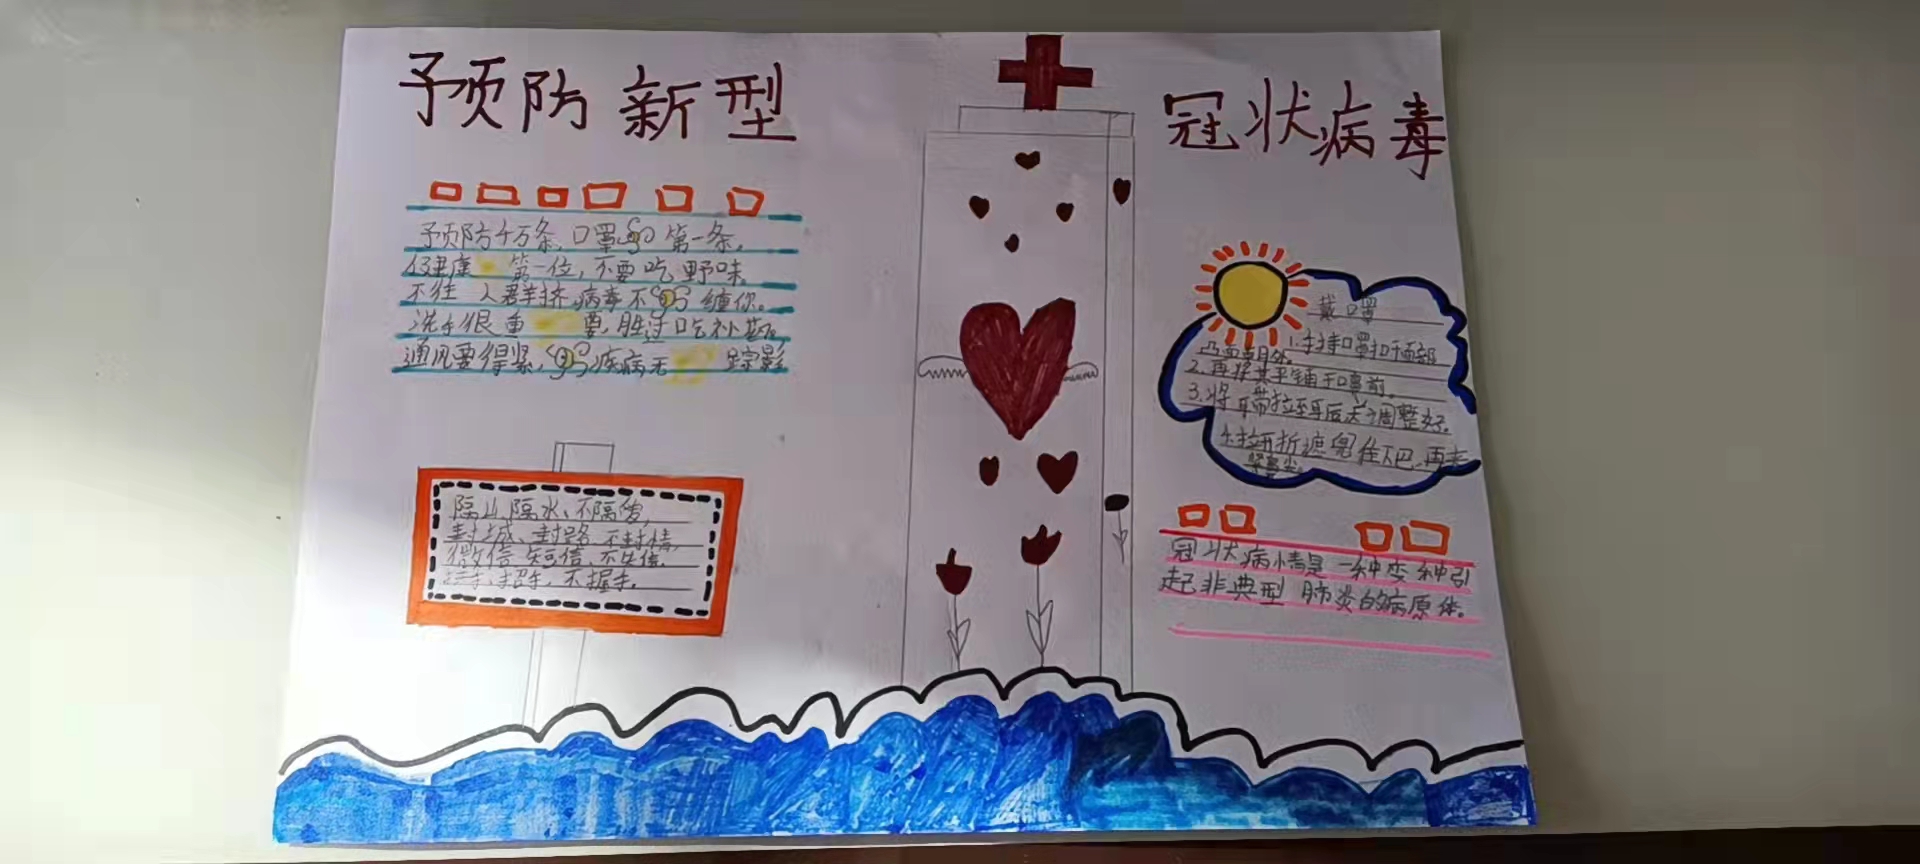 预防新型
冠状病毒
预防千万条,口罩第一条。
健康第一位,不要吃野味。
不往人群挤,病毒不缠你。
洗手很重要,胜过吃补药。
通风要得紧,疾病无踪影
隔山、隔水、不隔爱,
封城、封路不封情,
微信、短信、不失信,
挥手、招手,不握手。
戴口罩
1.手持口罩扣于面部
凸面朝外。
2.再将其平铺于鼻前。
3.将耳带拉至耳后去调整好。
4.拉开折遮完住下巴,再来
冠状病情是一种变种引
起非典型肺炎的病原体。